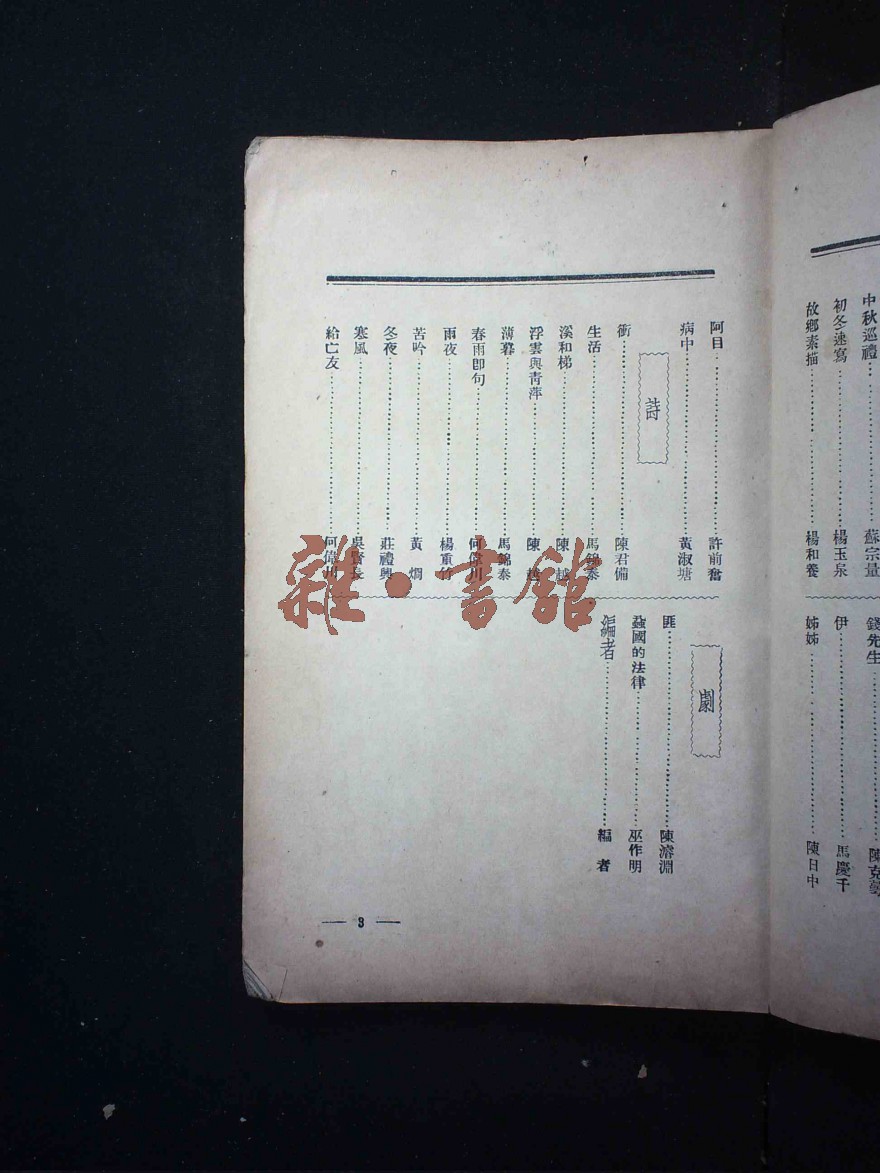 中秋巡禮……蘇宗量
初冬速寫……楊玉泉
故鄉素描……楊和養
錢先生……陳克
伊……馬慶千
姊姊……陳日中
阿目……許前奮
病中……黃淑塘
詩
衝……陳君備
生活……馬錦泰
溪和梯……陳 越
浮雲與青萍……陳 越
薄暮……馬錦泰
春雨卽句……何偉川
雨夜……楊重
苦吟……黃 烱
冬夜……莊禮興
寒風……吳賢長
給亡友……何偉川
劇
匪……陳濬淵
強國的法律……巫作明
編者……編 者
— 3 —
雜·書館